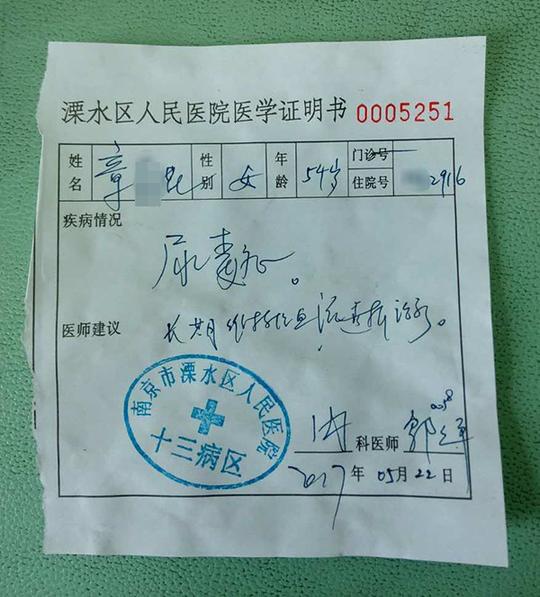 溧水区人民医院医学证明书 0005251
姓名 章 性别 女 年龄 54岁 门诊号 住院号 2916
疾病情况
尿毒症。
医师建议 长期维持性血液透析治疗。
南京市溧水区人民医院
十三病区
内 科医师
2017年05月22日